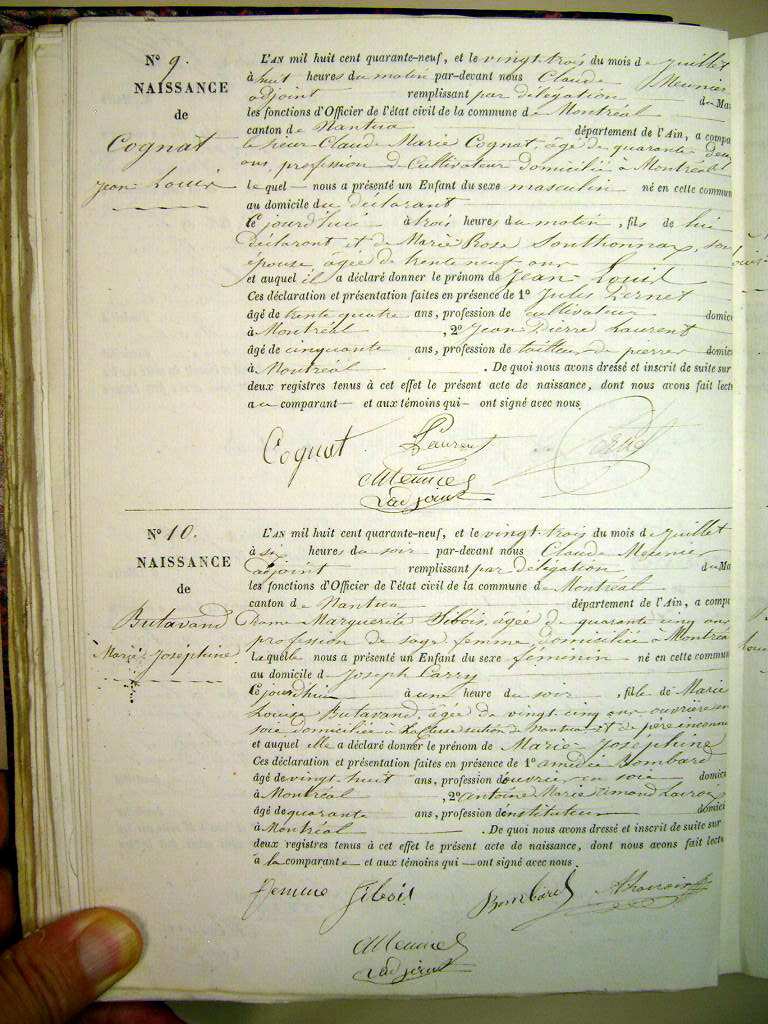 N° 9.
NAISSANCE
de
Cognat
Jean Louis
L'AN mil huit cent quarante-neuf, et le vingt trois du mois de juillet
à huit heures du matin par-devant nous Claude Meunier
adjoint remplissant par délégation du Mai
les fonctions d'Officier de l'état civil de la commune de Montréal
canton de Nantua département de l'Ain, a compa
le sieur Claude Marie Cognat, âgé de quarante deux
ans, profession de Cultivateur domicilié à Montréal
lequel nous a présenté un Enfant du sexe masculin né en cette commun
au domicile du déclarant
Ce jourd'hui à trois heures du matin, fils de lui
déclarant et de Marie Rose Southonnax, son
épouse, agée de trente neuf ans
et auquel il a déclaré donner le prénom de Jean Louis
Ces déclaration et présentation faites en présence de 1° Jules Pernet
âgé de trente quatre ans, profession de cultivateur domici
à Montréal, 2° Jean Pierre Laurent
âgé de cinquante ans, profession de tailleur de pierres domici
à Montréal. De quoi nous avons dressé et inscrit de suite sur
deux registres tenus à cet effet le présent acte de naissance, dont nous avons fait lect
au comparant et aux témoins qui ont signé avec nous
Cognat Laurent Pernet
Meunier
L'adjoint
N° 10.
NAISSANCE
de
Butavand
Marie Joséphine
L'AN mil huit cent quarante-neuf, et le vingt trois du mois de juillet
à six heures du soir par-devant nous Claude Meunier
adjoint remplissant par délégation du Mai
les fonctions d'Officier de l'état civil de la commune de Montréal
canton de Nantua département de l'Ain, a compa
Dame Marguerite Sibois, âgée de quarante cinq ans
profession de sage femme domiciliée à Montréa
laquelle nous a présenté un Enfant du sexe féminin né en cette commun
au domicile d Joseph Carry
Ce jourdhui à une heure du soir, fille de Marie
Louise Butavand, âgée de vingt cinq ans ouvrière en
soie domiciliée à section de Nantua et de père inconnu
et auquel elle a déclaré donner le prénom de Marie Joséphine
Ces déclaration et présentation faites en présence de 1° amédée Bombard
âgé de vingt huit ans, profession d'ouvrier en soie domici
à Montréal, 2° Antoine Marie Lacroix
âgé de quarante ans, profession d'instituteur domici
à Montréal. De quoi nous avons dressé et inscrit de suite sur
deux registres tenus à cet effet le présent acte de naissance, dont nous avons fait lect
a la comparante et aux témoins qui ont signé avec nous.
femme Sibois Bombard
Meunier
L'adjoint